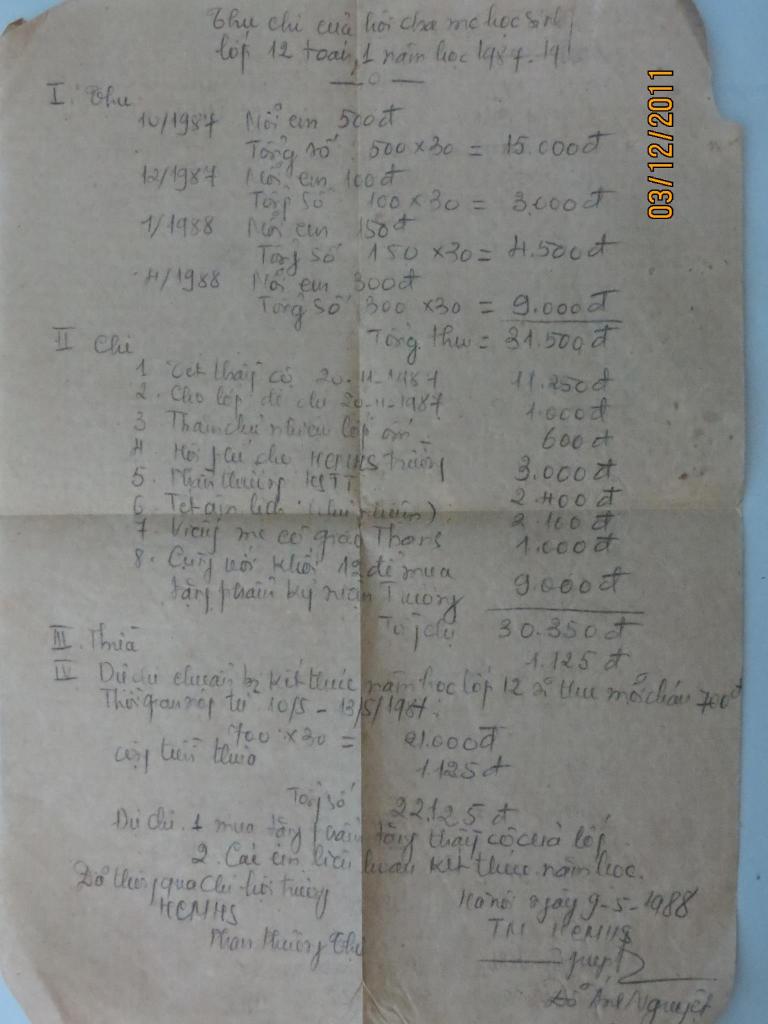 Thu chi của hội cha mẹ học sinh
lớp 12 toán 1 năm học 1987-19
03/12/2011
I. Thu
10/1987 Mỗi em 500đ
Tổng số 500 x 30 = 15.000đ
12/1987 Mỗi em 100đ
Tổng số 100 x 30 = 3.000đ
1/1988 Mỗi em 150đ
Tổng số 150 x 30 = 4.500đ
4/1988 Mỗi em 300đ
Tổng số 300 x 30 = 9.000đ
Tổng thu = 31.500đ
II Chi
1 Tết thầy cô 20-11-1987 11.250đ
2. Cho lớp để chi 20-11-1987 1.000đ
3 Thăm chủ nhiệm lớp ốm 600đ
4. Hội phí cho HCMHS trường 3.000đ
5. Phần thưởng HSTT 2.400đ
6 Tết âm lịch (chủ nhiệm) 2.100đ
7. Viếng mẹ cô giáo 1.000đ
8. Cùng với khối 12 để mua
tặng phẩm kỷ niệm Trường 9.000đ
Tổng chi 30.350đ
III. Thừa 1.125đ
IV Dự chi chuẩn bị kết thúc năm học lớp 12 sẽ thu mỗi cháu 700đ
Thời gian nộp từ 10/5 - 13/5/1987:
700 x 30 = 21.000đ
cộng tiền thừa 1.125đ
Tổng số 22.125đ
Dự chi. 1 mua tặng phẩm tặng thầy cô của lớp
2. Các em liên hoan kết thúc năm học.
Đã thông qua Chi hội trưởng
HCMHS
Hà nội ngày 9-5-1988
TM HCMHS
Phan Thường
Đỗ Ánh Nguyệt